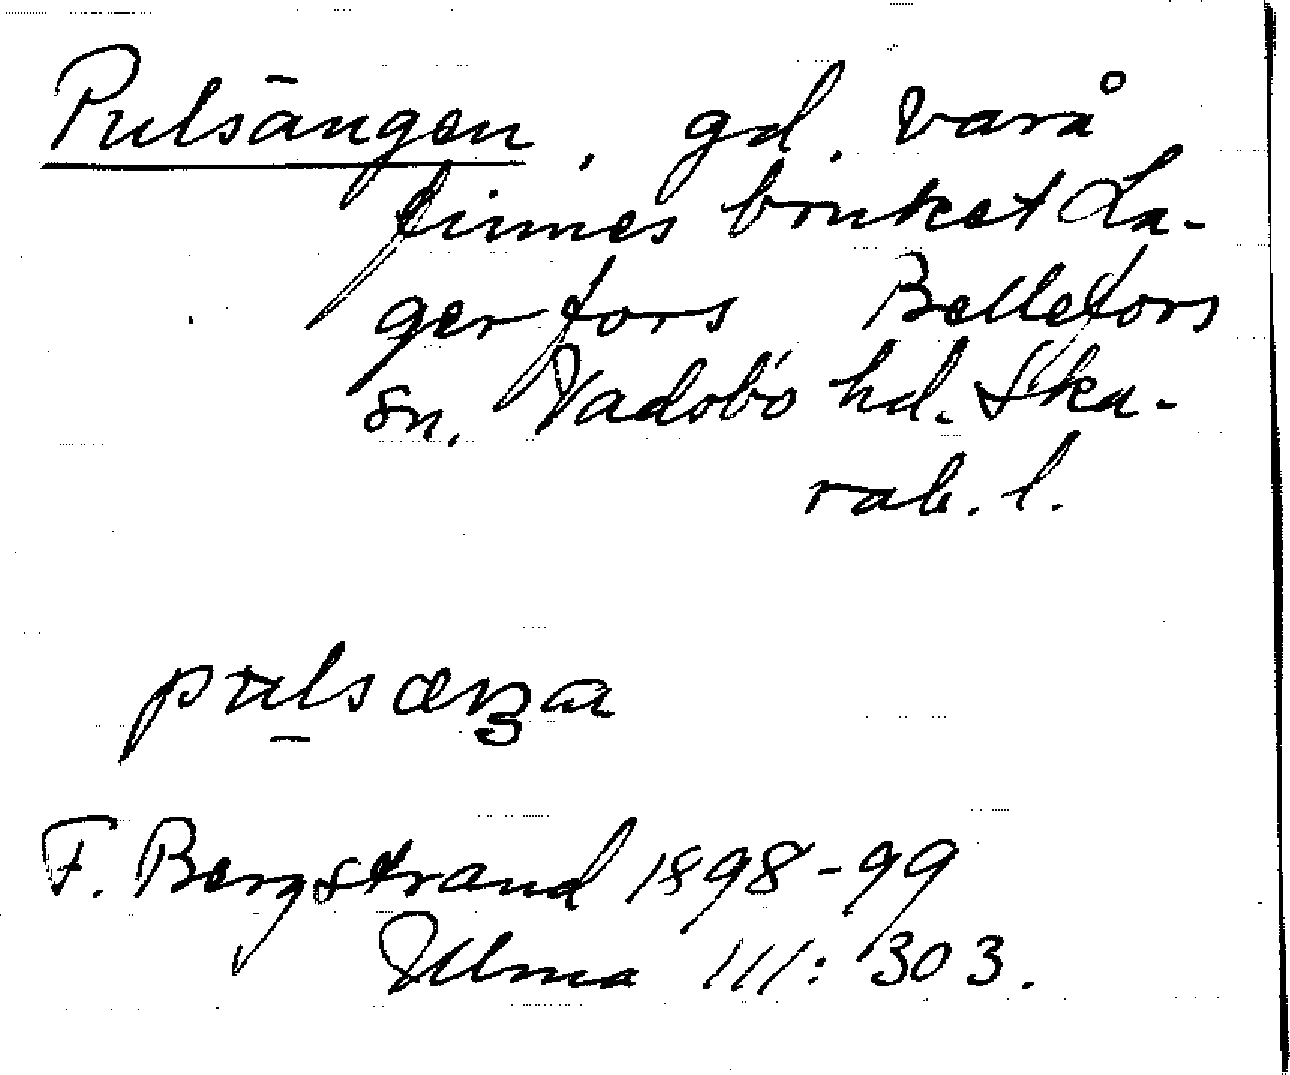 Pulsängen, gd. varå
finnes bruket La-
gerfors Bellefors
sn. Vadsbo hd. Ska-
rab. l.
pulsæŋa
F. Bergstrand 1898-99
Ulma 111:303.